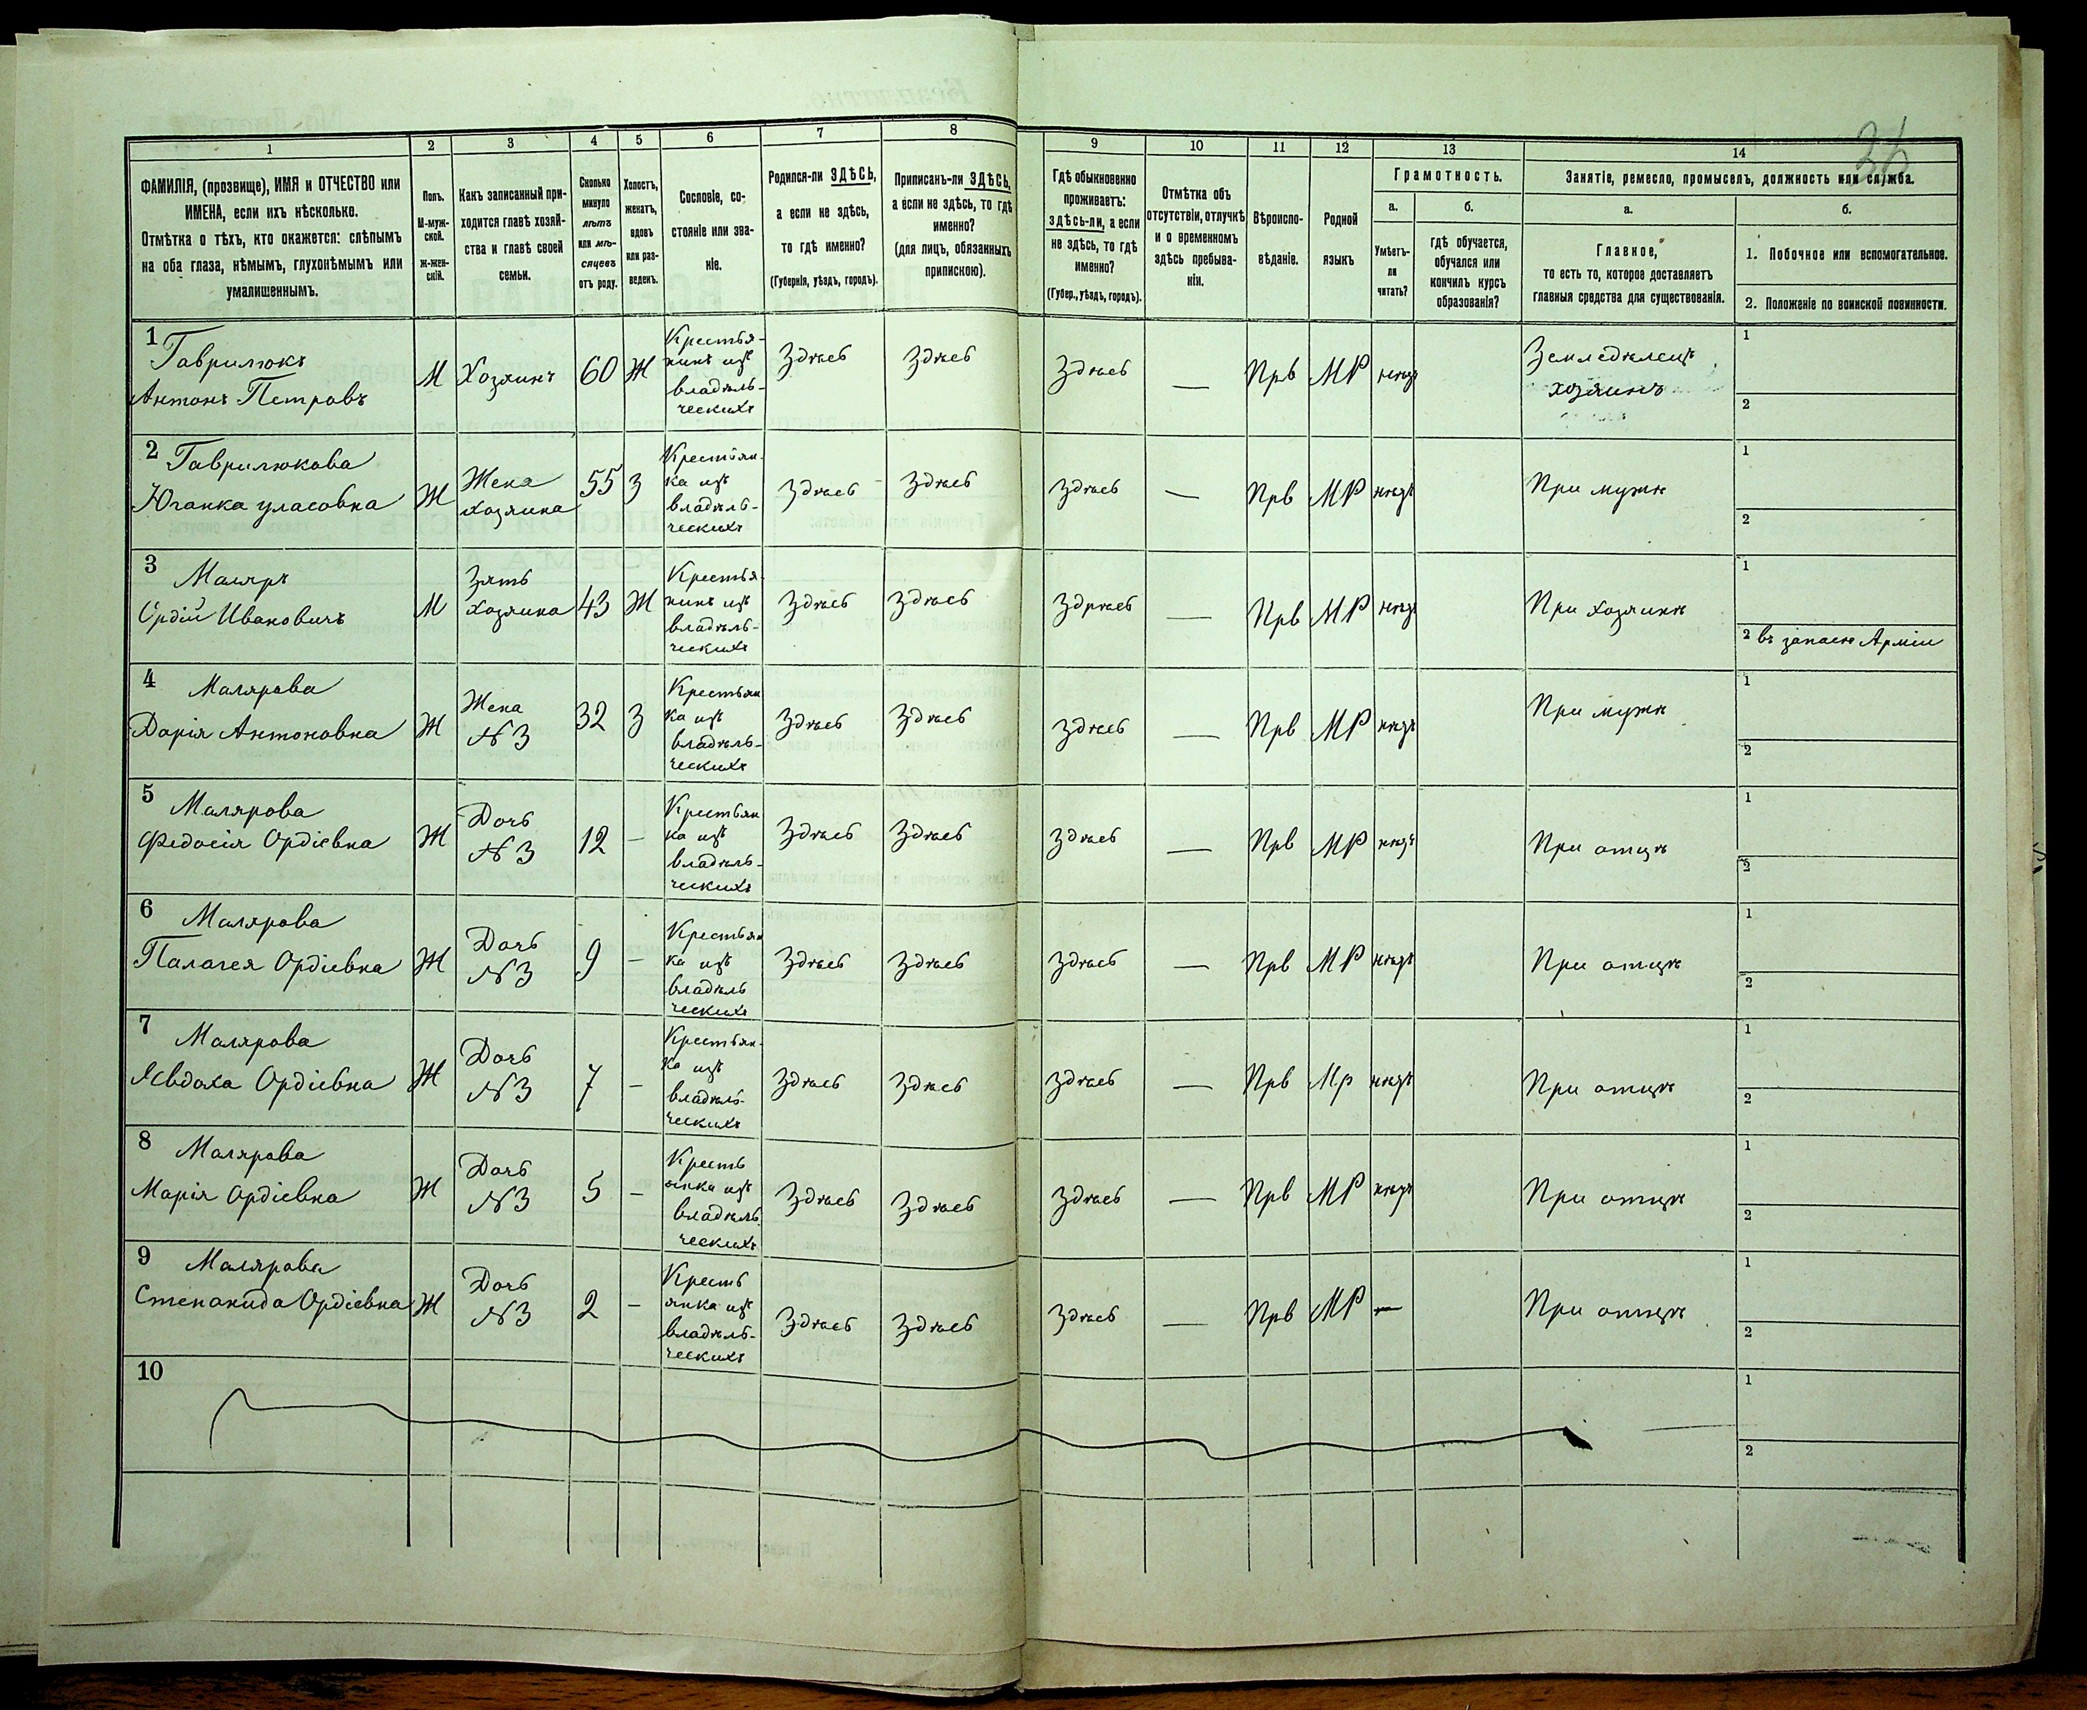 36
1 2 3 4 5 6 7 8 9 10 11 12 13 14
ФАМИЛІЯ, (прозвище), ИМЯ и ОТЧЕСТВО или
ИМЕНА, если ихъ нѣсколько.
Отмѣтка о тѣхъ, кто окажется: слѣпымъ
на оба глаза, нѣмымъ, глухонѣмымъ или
умалишеннымъ.
Полъ.
М-муж-
ской.
ж-жен-
скій.
Какъ записанный при-
ходится главѣ хозяй-
ства и главѣ своей
семьи.
Сколько
минуло
лѣтъ
или мѣ-
сяцевъ
отъ роду.
Холостъ,
женатъ,
вдовъ
или раз-
веденъ.
Сословіе, со-
стояніе или зва-
ніе.
Родился-ли ЗДѢСЬ,
а если не здѣсь,
то гдѣ именно?
(Губернія, уѣздъ, городъ).
Приписанъ-ли ЗДѢСЬ,
а если не здѣсь, то гдѣ
именно?
(для лицъ, обязанныхъ
припискою).
Гдѣ обыкновенно
проживаетъ:
здѣсь-ли, а если
не здѣсь, то гдѣ
именно?
(Губер., уѣздъ, городъ).
Отмѣтка объ
отсутствіи, отлучкѣ
и о временномъ
здѣсь пребыва-
ніи.
Вѣроиспо-
вѣданіе.
Родной
языкъ
Грамотность.
а.
Умѣетъ-
ли
читать?
б.
гдѣ обучается,
обучался или
кончилъ курсъ
образованія?
Занятіе, ремесло, промыселъ, должность или служба.
а.
Главное,
то есть то, которое доставляетъ
главныя средства для существованія.
б.
1. Побочное или вспомогательное.
2. Положеніе по воинской повинности.
1
Гаврилюкъ
Антонъ Петровъ
М
Хозяинъ
60
Ж
Крестья-
нинъ изъ
владѣль-
ческихъ
Здѣсь
Здѣсь
Здѣсь
—
Прв
МР
Земледѣлецъ
хозяинъ
1
2
2
Гаврилюкова
Юганка уласовна
Ж
Жена
хозяина
55
З
Крестьян-
ка изъ
владѣль-
ческихъ
Здѣсь
Здѣсь
Здѣсь
—
Прв
МР
При мужѣ
1
2
3
Маляръ
Ордій Ивановичъ
М
Зять
хозяина
43
Ж
Крестья-
нинъ изъ
владѣль-
ческихъ
Здѣсь
Здѣсь
Здѣсь
—
Прв
МР
При хозяинѣ
1
2 въ запасѣ Арміи
4
Малярова
Дарія Антоновна
Ж
Жена
№ 3
32
З
Крестьян
ка изъ
владѣль-
ческихъ
Здѣсь
Здѣсь
Здѣсь
—
Прв
МР
При мужѣ
1
2
5
Малярова
Федосія Ордіевна
Ж
Дочь
№ 3
12
—
Крестьян
ка изъ
владѣль-
ческихъ
Здѣсь
Здѣсь
Здѣсь
—
Прв
МР
При отцѣ
1
2
6
Малярова
Палагея Ордіевна
Ж
Дочь
№ 3
9
—
Крестьян
ка изъ
владѣль
ческихъ
Здѣсь
Здѣсь
Здѣсь
—
Прв
МР
При отцѣ
1
2
7
Малярова
Явдоха Ордіевна
Ж
Дочь
№ 3
7
—
Крестьян-
ка изъ
владѣль-
ческихъ
Здѣсь
Здѣсь
Здѣсь
—
Прв
Мр
При отцѣ
1
2
8
Малярова
Марія Ордіевна
Ж
Дочь
№ 3
5
—
Кресть
янка изъ
владѣль
ческихъ
Здѣсь
Здѣсь
Здѣсь
—
Прв
МР
При отцѣ
1
2
9
Малярова
Степанида Ордіевна
Ж
Дочь
№ 3
2
—
Кресть
янка изъ
владѣль-
ческихъ
Здѣсь
Здѣсь
Здѣсь
—
Прв
МР
—
При отцѣ
1
2
10
1
2